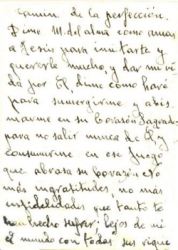 camino de la perfección.
Dime M. del alma como amas
a Jesús para imitarte y
quererle mucho, y dar mi vi
da por El, dime como haré
para sumergirme y abis
marme en su Corazón Sagrado
para no salir nunca de El, y
consumirme en ese fuego
que abrasa su Corazón. No
más ingratitudes, no más
infidelidades que tanto te
han hecho sufrir; lejos de mi
el mundo con todas sus rique